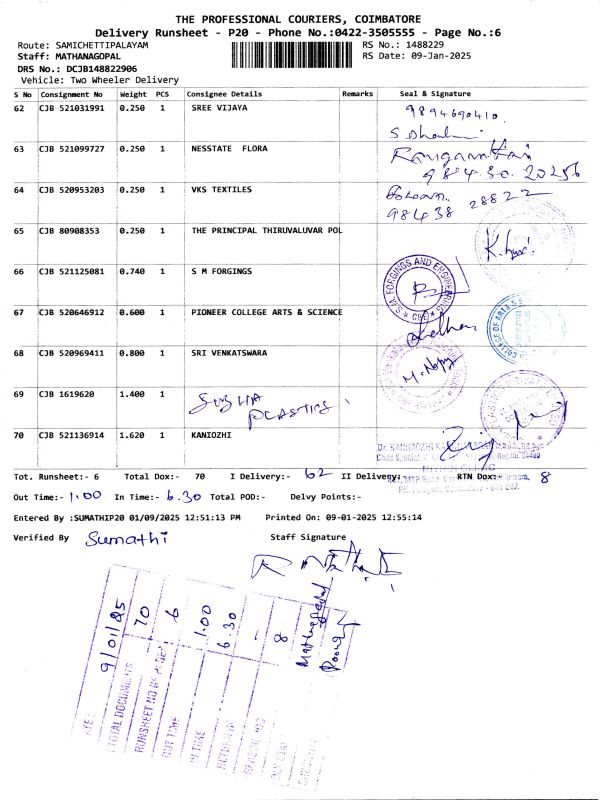 THE PROFESSIONAL COURIERS, COIMBATORE
Delivery Runsheet - P20 - Phone No.:0422-3505555 - Page No.:6
Route: SAMICHETTIPALAYAM RS No.: 1488229
Staff: MATHANAGOPAL RS Date: 09-Jan-2025
DRS No.: DCJB148822906
Vehicle: Two Wheeler Delivery
S No Consignment No Weight PCS Consignee Details Remarks Seal & Signature
62 CJB 521031991 0.250 1 SREE VIJAYA 9894690410.
63 CJB 521099727 0.250 1 NESSTATE FLORA
984 30. 20256
64 CJB 520953203 0.250 1 VKS TEXTILES
98438 28822
65 CJB 80908353 0.250 1 THE PRINCIPAL THIRUVALUVAR POL
66 CJB 521125081 0.740 1 S M FORGINGS S.M. FORGINGS AND ENGINEERING CBE
67 CJB 520646912 0.600 1 PIONEER COLLEGE ARTS & SCIENCE
68 CJB 520969411 0.800 1 SRI VENKATSWARA
69 CJB 1619620 1.400 1 PLASTICS
70 CJB 521136914 1.620 1 KANIOZHI
Tot. Runsheet:- 6 Total Dox:- 70 I Delivery:- 62 II Delivery:- RTN Dox:- 8
Out Time:- 1.00 In Time:- 6.30 Total POD:- Delvy Points:-
Entered By :SUMATHIP20 01/09/2025 12:51:13 PM Printed On: 09-01-2025 12:55:14
Verified By Sumathi Staff Signature
9/01/25
TOTAL DOCUMENTS 70
RUNSHEET NO 6
OUT TIME 1.00
IN TIME 6.30
-
8